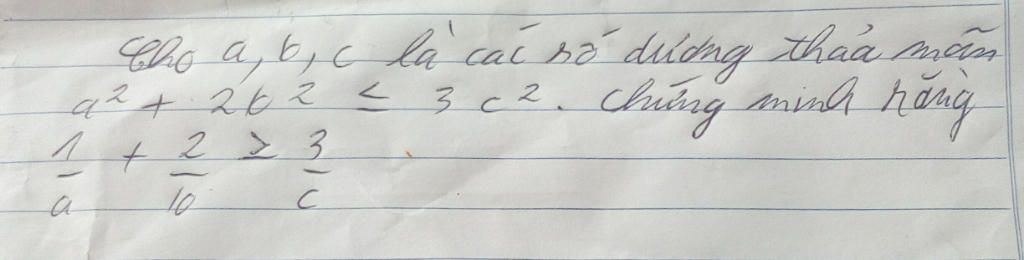 Cho a, b, c là các số dương thỏa mãn
a² + 2b² ≤ 3c². Chứng minh rằng
1/a + 2/b ≥ 3/c